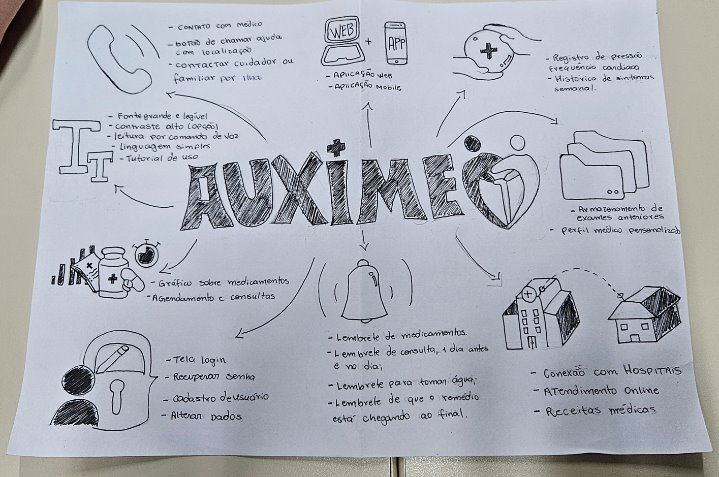 - CONTATO COM MÉDICO
- BOTÃO DE CHAMAR AJUDA
COM LOCALIZAÇÃO
- CONTACTAR CUIDADOR OU
familiar por
WEB
+
APP
- APLICAÇÃO WEB
- APLICAÇÃO MOBILE
- Registro de pressão
frequência cardíaca
- Histórico de sintomas
semanal.
TT
- Fonte grande e legível
- contraste alto (opção)
- leitura por comando de voz
- linguagem simples
- Tutorial de uso
AUXIMED
- Armazenamento de
exames anteriores
- Perfil médico personalizado
- Gráfico sobre medicamentos
- Agendamento e consultas
- Tela login
- Recuperar senha
- Cadastro de usuário
- Alterar Dados
- Lembrete de medicamentos.
- Lembrete de consulta, 1 dia antes
e no dia;
- Lembrete para tomar água;
- Lembrete de que o remédio
está chegando ao final.
- Conexão com HOSPITAIS
- ATendimento Online
- Receitas médicas